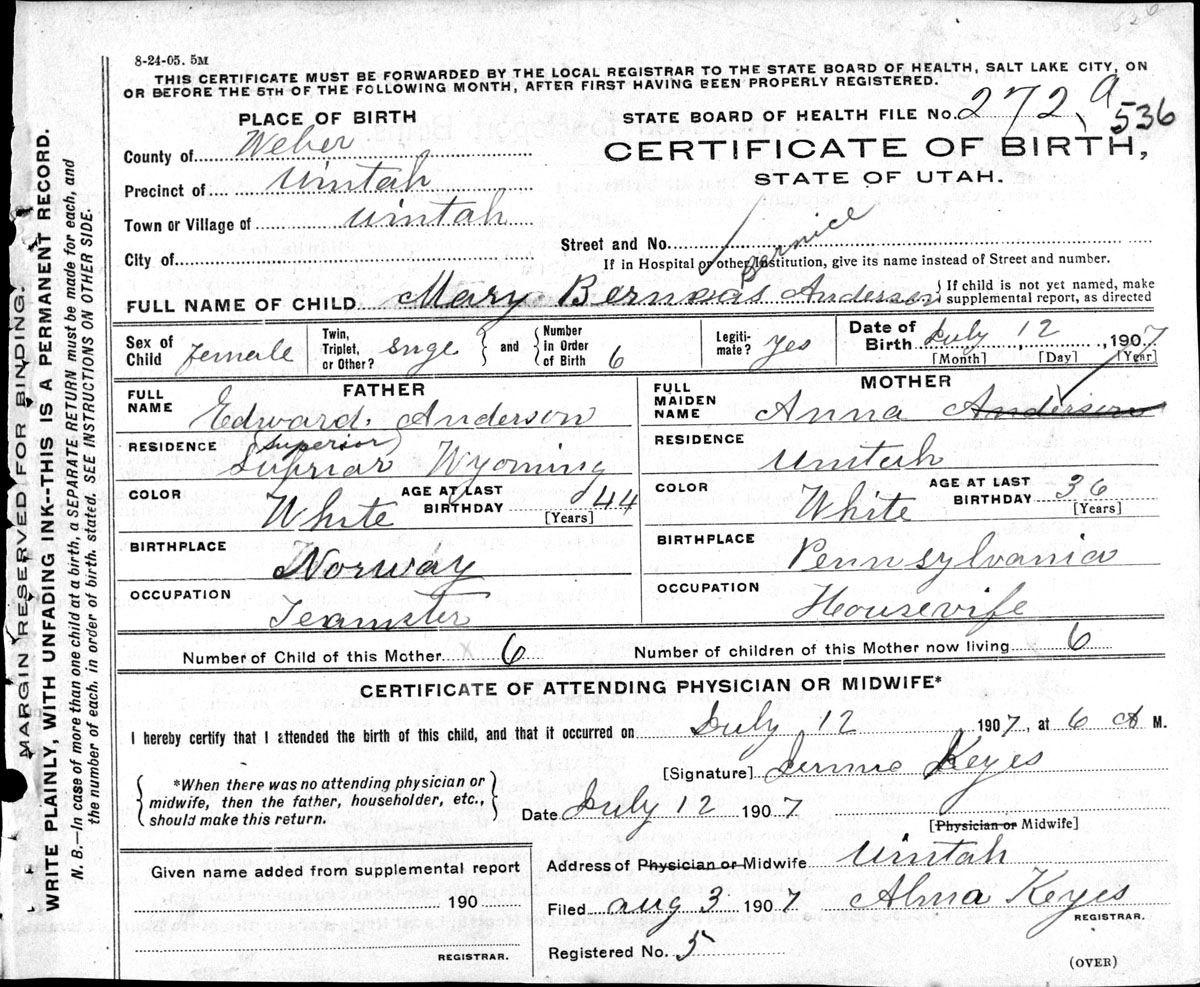 8-24-05. 5M
THIS CERTIFICATE MUST BE FORWARDED BY THE LOCAL REGISTRAR TO THE STATE BOARD OF HEALTH, SALT LAKE CITY, ON
OR BEFORE THE 5TH OF THE FOLLOWING MONTH, AFTER FIRST HAVING BEEN PROPERLY REGISTERED.
MARGIN RESERVED FOR BINDING.
WRITE PLAINLY, WITH UNFADING INK--THIS IS A PERMANENT RECORD.
N. B.—In case of more than one child at a birth, a SEPARATE RETURN must be made for each, and
the number of each, in order of birth, stated. SEE INSTRUCTIONS ON OTHER SIDE.
PLACE OF BIRTH
County of Weber
Precinct of Uintah
Town or Village of Uintah
City of
STATE BOARD OF HEALTH FILE No. 272 a 536
CERTIFICATE OF BIRTH,
STATE OF UTAH.
Street and No.
If in Hospital or other Institution, give its name instead of Street and number.
Bernice
FULL NAME OF CHILD Mary Anderson { If child is not yet named, make
supplemental report, as directed
Sex of Child female
Twin, Triplet, or Other? Singe
and Number in Order of Birth 6
Legiti-mate? yes
Date of Birth July 12, 1907
[Month] [Day] [Year]
FATHER
FULL NAME Edward Anderson
(Superior)
RESIDENCE Supriar Wyoming
COLOR White AGE AT LAST BIRTHDAY 44
[Years]
BIRTHPLACE Norway
OCCUPATION Teamster
MOTHER
FULL MAIDEN NAME Anna Anderson
RESIDENCE Uintah
COLOR White AGE AT LAST BIRTHDAY 36
[Years]
BIRTHPLACE Pennsylvania
OCCUPATION Housevife
Number of Child of this Mother 6 Number of children of this Mother now living 6
CERTIFICATE OF ATTENDING PHYSICIAN OR MIDWIFE*
I hereby certify that I attended the birth of this child, and that it occurred on July 12 1907, at 6 A M.
*When there was no attending physician or
midwife, then the father, householder, etc.,
should make this return.
[Signature] Keyes
Date July 12 1907
[Physician or Midwife]
Address of Physician or Midwife Uintah
Filed Aug 3 1907 Alma Keyes
REGISTRAR.
Registered No. 5
(OVER)
Given name added from supplemental report
190
REGISTRAR.